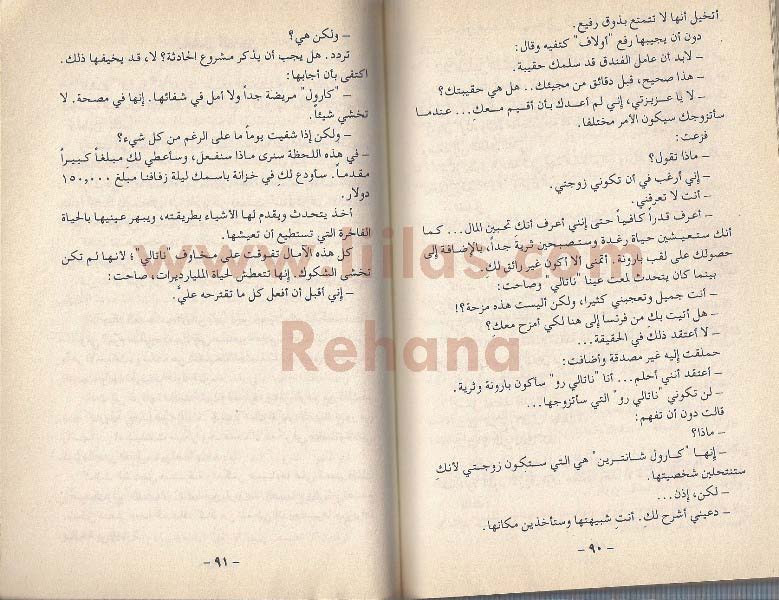 أتخيل أنها لا تتمتع بذوق رفيع.
دون أن يجيبها رفع "أولاف" كتفيه وقال:
– لابد أن عامل الفندق قد سلمك حقيبة.
– هذا صحيح، قبل دقائق من مجيئك.. هل هي حقيبتك؟
– لا يا عزيزتي، إني لم أعدك بأن أقيم معك... عندما
سأتزوجك سيكون الأمر مختلفا.
فزعت:
– ماذا تقول؟
– إني أرغب في أن تكوني زوجتي.
– أنت لا تعرفني.
– أعرف قدراً كافياً حتى إنني أعرف أنك تحبين المال... كما
أنك ستعيشين حياة رغدة وستصبحين ثرية جداً، بالإضافة إلى
حصولك على لقب بارونة. أتمنى ألا أكون غير رائق لك.
بينما كان يتحدث لمعت عينا "ناتالي" وصاحت:
– أنت جميل وتعجبني كثيرا، ولكن أليست هذه مزحة؟!
– هل أتيت بك من فرنسا إلى هنا لكي أمزح معك؟
– لا أعتقد ذلك في الحقيقة...
حملقت إليه غير مصدقة وأضافت:
– أعتقد أنني أحلم... أنا "ناتالي رو" سأكون بارونة وثرية.
– لن تكوني "ناتالي رو" التي سأتزوجها...
قالت دون أن تفهم:
– ماذا؟
– إنها "كارول شانترين" هي التي ستكون زوجتي لأنكِ
ستنتحلين شخصيتها.
– لكن، إذن...
– دعيني أشرح لكِ. أنتِ شبيهتها وستأخذين مكانها.
– ٩٠ –
– ولكن هي؟
تردد. هل يجب أن يذكر مشروع الحادثة؟ لا، قد يخيفها ذلك.
اكتفى بأن أجابها:
– "كارول" مريضة جداً ولا أمل في شفائها. إنها في مصحة. لا
تخشي شيئاً.
– ولكن إذا شفيت يوماً ما على الرغم من كل شيء؟
– في هذه اللحظة سنرى ماذا سنفعل، وسأعطي لك مبلغاً كبيراً
مقدماً. سأودع لكِ في خزانة باسمك ليلة زفافنا مبلغ ١٥٠,٠٠٠
دولار.
أخذ يتحدث ويقدم لها الأشياء بطريقته، ويبهر عينيها بالحياة
الفاخرة التي تستطيع أن تعيشها.
كل هذه الآمال تفوقت على مخاوف "ناتالي"؛ لأنها لم تكن
تخشى الشكوك. إنها تتعطش لحياة المليارديرات، صاحت:
– إني أقبل أن أفعل كل ما تقترحه عليَّ.
– ٩١ –
www.liilas.com
Rehana